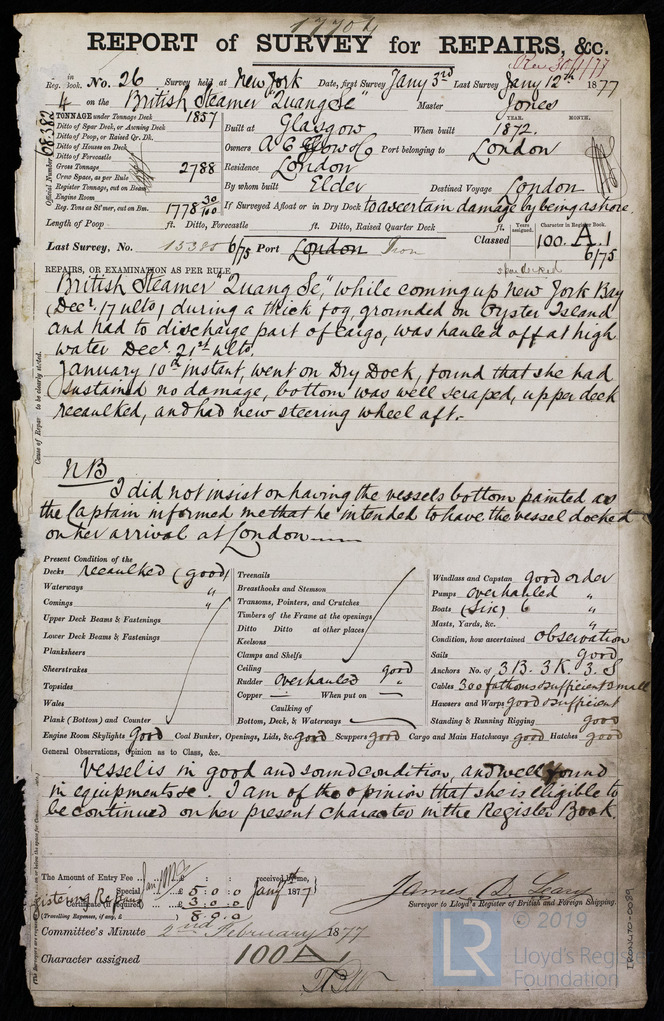 17704
REPORT of SURVEY for REPAIRS, &c.
in Reg. Book. No. 26 Survey held at New York Date, first Survey Jany 3rd Last Survey Jany 12th 1877
4 on the British Steamer "Quang Se" Master Jones
TONNAGE under Tonnage Deck 1857
Ditto of Spar Deck, or Awning Deck
Ditto of Poop, or Raised Qr. Dk.
Ditto of Houses on Deck
Ditto of Forecastle
Gross Tonnage 2788
Crew Space, as per Rule
Register Tonnage, cut on Beam
Engine Room
Reg. Tons as St'mer, cut on Bm. 1778 30/100
Official Number 68.382
YEAR. MONTH.
Built at Glasgow When built 1872.
Owners Port belonging to London
Residence London
By whom built Elder Destined Voyage London
If Surveyed Afloat or in Dry Dock to ascertain damage by being ashore
Length of Poop ft. Ditto, Forecastle ft. Ditto, Raised Quarter Deck ft.
Years assigned. Character in Register Book.
Last Survey, No. 15385 6/75 Port London Iron Classed 100.A.1
6/75
spar decked
REPAIRS, OR EXAMINATION AS PER RULE
Cause of Repair to be clearly stated.
British Steamer "Quang Se", while coming up New York Bay
(Decr. 17 ulto) during a thick fog, grounded on Oyster Island
and had to discharge part of cargo, was hauled off at high
water Decr. 21st ulto.
January 10th instant, went on Dry Dock, found that she had
sustained no damage, bottom was well scraped, upper deck
recaulked, and had new steering wheel aft.
NB
I did not insist on having the vessels bottom painted as
the Captain informed me that he intended to have the vessel docked
on her arrival at London
Present Condition of the
Decks recaulked (good)
Waterways "
Comings "
Upper Deck Beams & Fastenings
Lower Deck Beams & Fastenings
Planksheers
Sheerstrakes
Topsides
Wales
Plank (Bottom) and Counter
Treenails
Breasthooks and Stemson
Transoms, Pointers, and Crutches
Timbers of the Frame at the openings
Ditto Ditto at other places
Keelsons
Clamps and Shelfs
Ceiling good
Rudder overhauled "
Copper — When put on —
Caulking of
Bottom, Deck, & Waterways
Windlass and Capstan good order
Pumps overhauled "
Boats (Six) 6 "
Masts, Yards, &c. "
Condition, how ascertained observation
Sails good
Anchors No. of 3 B. 3 K. 3. S
Cables 300 fathoms & sufficient small
Hawsers and Warps good & sufficient
Standing & Running Rigging good
Engine Room Skylights good Coal Bunker, Openings, Lids, &c. good Scuppers good Cargo and Main Hatchways good Hatches good
General Observations, Opinion as to Class, &c.
Vessel is in good and sound condition, and well found
in equipments &c. I am of the opinion that she is eligible to
be continued on her present character in the Register Book
The Amount of Entry Fee received by me,
Special £ 5 : 0 : 0 Jany 1877
Certificate (if required) £ 3 : 0 : 0
(Travelling Expenses, if any, £ ) 8 . 0 . 0
James D. Leary
Surveyor to Lloyd's Register of British and Foreign Shipping.
Committee's Minute 2nd February 1877
Character assigned 100 A 1
IRON470-0089
© 2019
LR
Lloyd's Register
Foundation